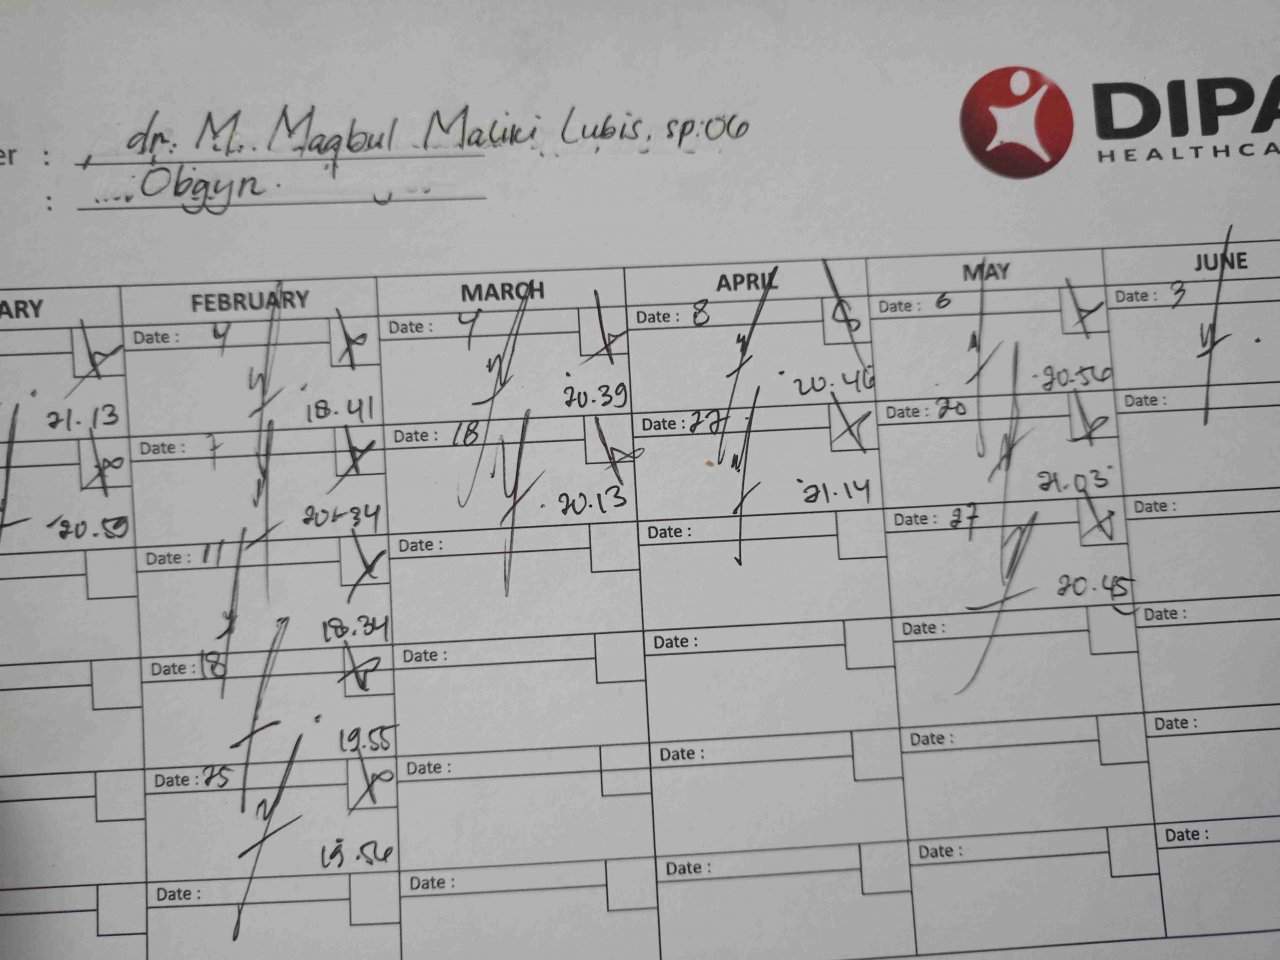 DIPA
HEALTHCA
er : dr. M. Maqbul Maliki Lubis. sp.OG
: Obgyn.
ARY FEBRUARY MARCH APRIL MAY JUNE
Date : 4 Date : 4 Date : 8 Date : 6 Date : 3
21.13 18.41 20.39 20.46 20.56
Date : 7 Date : 18 Date : 22 Date : 20 Date :
20.59 20.34 20.13 21.14 21.03
Date : 11 Date : Date : Date : 27 Date :
18.34 20.45
Date : 18 Date : Date : Date : Date :
19.55
Date : 25 Date : Date : Date : Date :
19.56
Date : Date : Date : Date : Date :